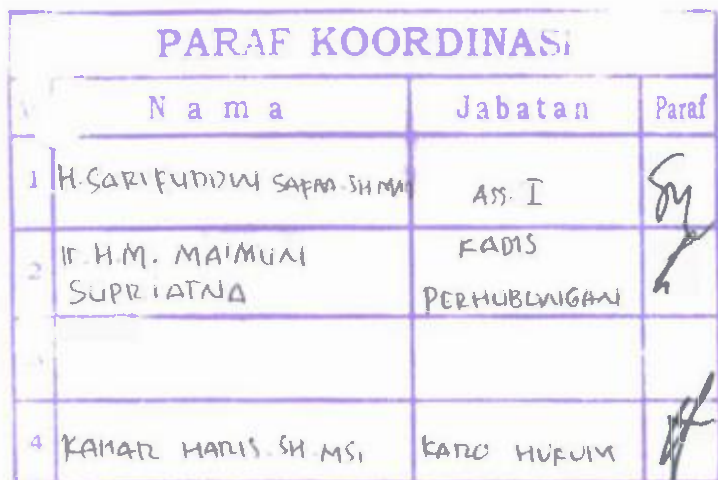 PARAF KOORDINASI
Nama Jabatan Paraf
1 H. SARIFUDDIN SAFAA. SH. MM Ass. I
2 Ir. H.M. MAIMUN SUPRIATNA KADIS PERHUBUNGAN
4 KAHAR HARIS. SH. MSi KARO HUKUM